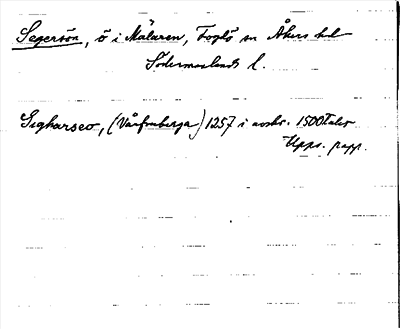 Segerön, ö i Mälaren, Fogdö sn Åkers hd
Södermanlands l.
Sigharseo, (Vårfruberga) 1257 i avskr. 1500talet
Upps. papp.